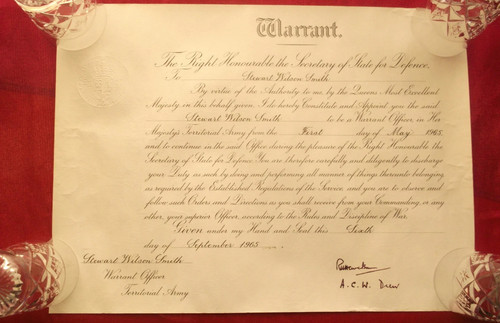 Warrant.
The Right Honourable the Secretary of State for Defence.
To Stewart Wilson Smith
By virtue of the Authority to me by the Queens Most Excellent
Majesty in this behalf given I do hereby Constitute and Appoint you the said
Stewart Wilson Smith to be a Warrant Officer in Her
Majesty's Territorial Army from the First day of May 1965
and to continue in the said Office during the pleasure of the Right Honourable the
Secretary of State for Defence. You are therefore carefully and diligently to discharge
your Duty as such by doing and performing all manner of things thereunto belonging
as required by the Established Regulations of the Service and you are to observe and
follow such Orders and Directions as you shall receive from your Commanding, or any
other, your superior Officer, according to the Rules and Discipline of War.
Given under my Hand and Seal this Sixth
day of September 1965
Stewart Wilson Smith
Warrant Officer
Territorial Army
A.C.W. Drew